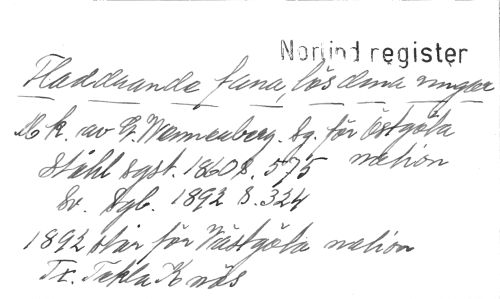 Norlind register
Fladdrande fana, lös dina ringar
Mk. av G. Wennerberg. Sg. för Östgöta
nation
Ståhl sgst. 1860 s. 575
Sv. Sgb. 1892 s. 324
1892 står för Västgöta nation
Tx. Tekla Knös